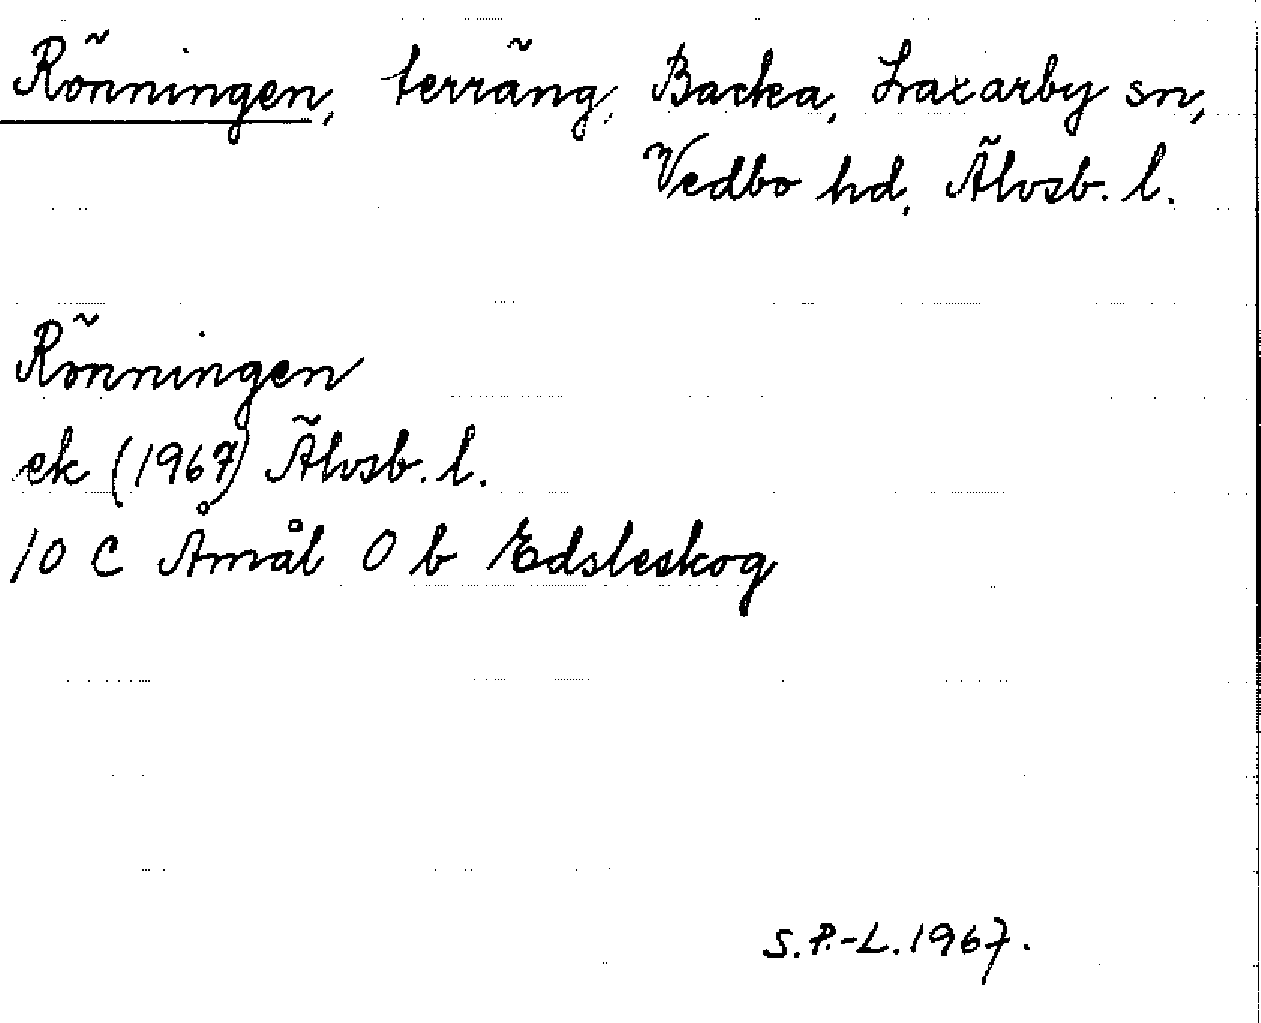 Rönningen, terräng, Backa, Laxarby sn,
Vedbo hd, Älvsb. l.
Rönningen
ek (1967) Älvsb. l.
10 C Åmål 0 b Edsleskog
S.P.-L. 1967.